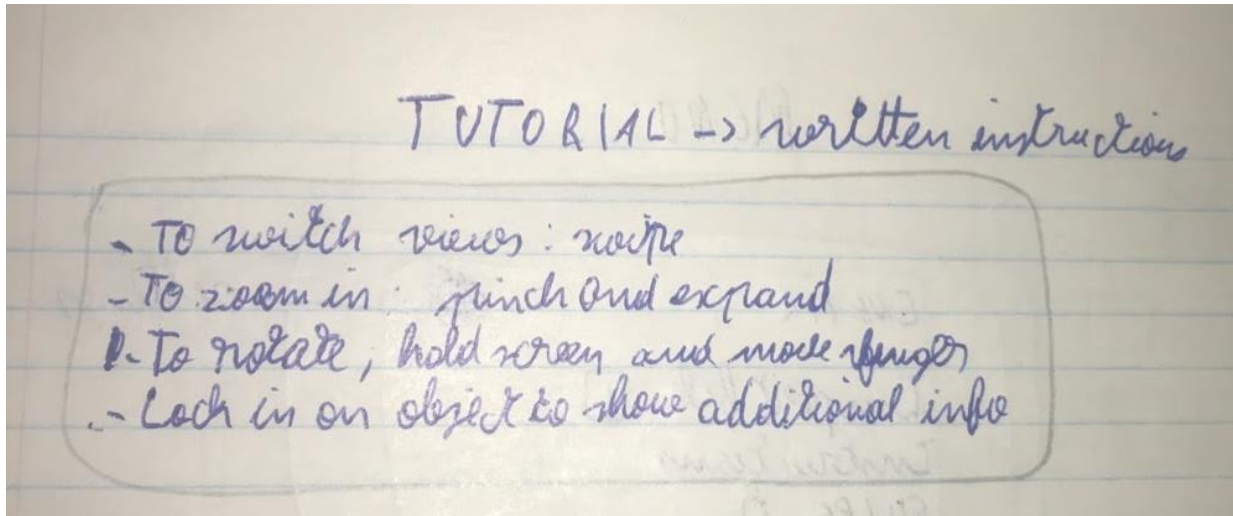 TUTORIAL -> written instructions
- To switch views: swipe
- To zoom in: pinch and expand
- To rotate, hold screen and move finger
- Lock in on object to show additional info